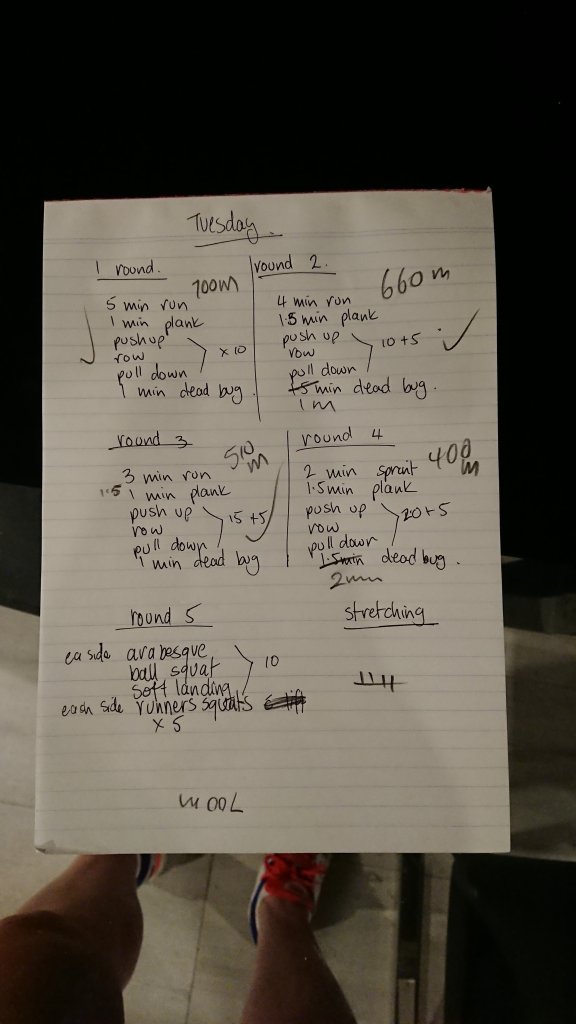 Tuesday
1 round.
700m
5 min run
1 min plank
push up
row
pull down
x 10
1 min dead bug.
round 2.
660 m
4 min run
1.5 min plank
push up
row
pull down
10 + 5
1.5 min dead bug.
1 m
round 3
510 m
3 min run
1.5 1 min plank
push up
row
pull down
15 + 5
1 min dead bug
round 4
400 m
2 min sprint
1.5 min plank
push up
row
pull down
20 + 5
1.5 min dead bug.
2 min
round 5
ea side arabesque
ball squat
soft landing
10
each side runners squats
x 5
stretching
700 m